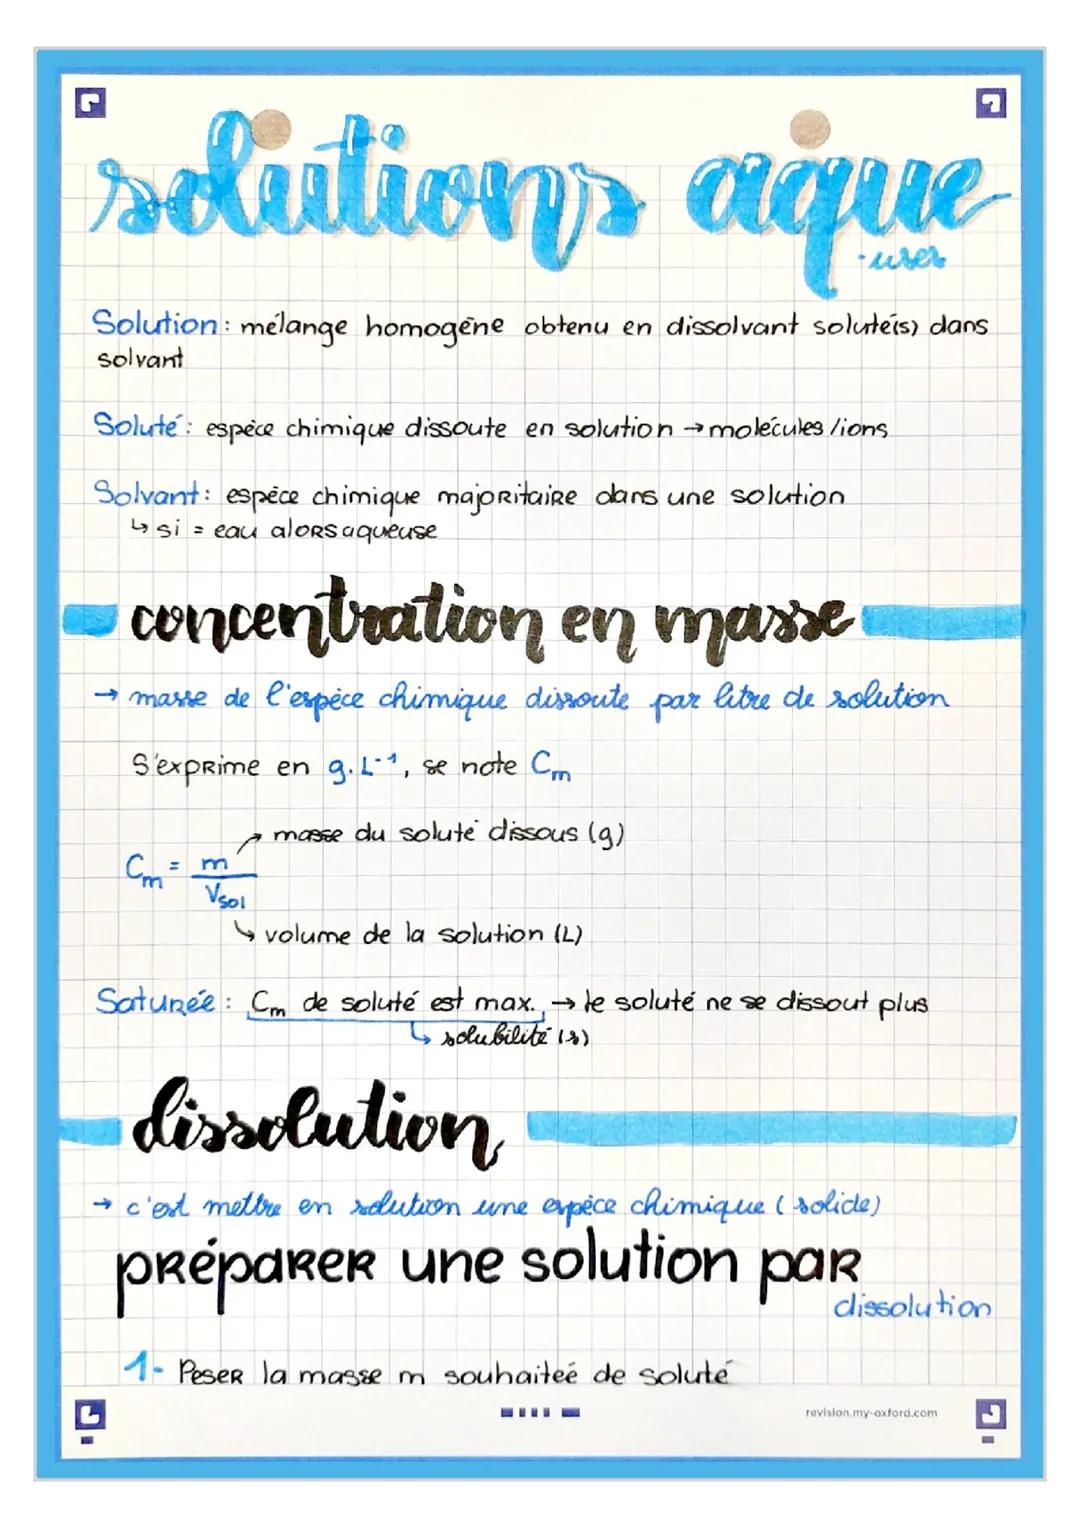 solutions aque
-uses
Solution : mélange homogène obtenu en dissolvant soluté(s) dans
solvant
Soluté : espèce chimique dissoute en solution → molécules/ions
Solvant : espèce chimique majoritaire dans une solution
↳ si = eau alors aqueuse
concentration en masse
→ masse de l'espèce chimique dissoute par litre de solution
S'exprime en g.L⁻¹, se note Cm
↗ masse du soluté dissous (g)
Cm = m
Vsol
↳ volume de la solution (L)
Saturée : Cm de soluté est max. → le soluté ne se dissout plus
↳ solubilité (s)
dissolution
→ c'est mettre en solution une espèce chimique (solide)
préparer une solution par
dissolution
1- Peser la masse m souhaiteé de soluté
revision.my-oxford.com